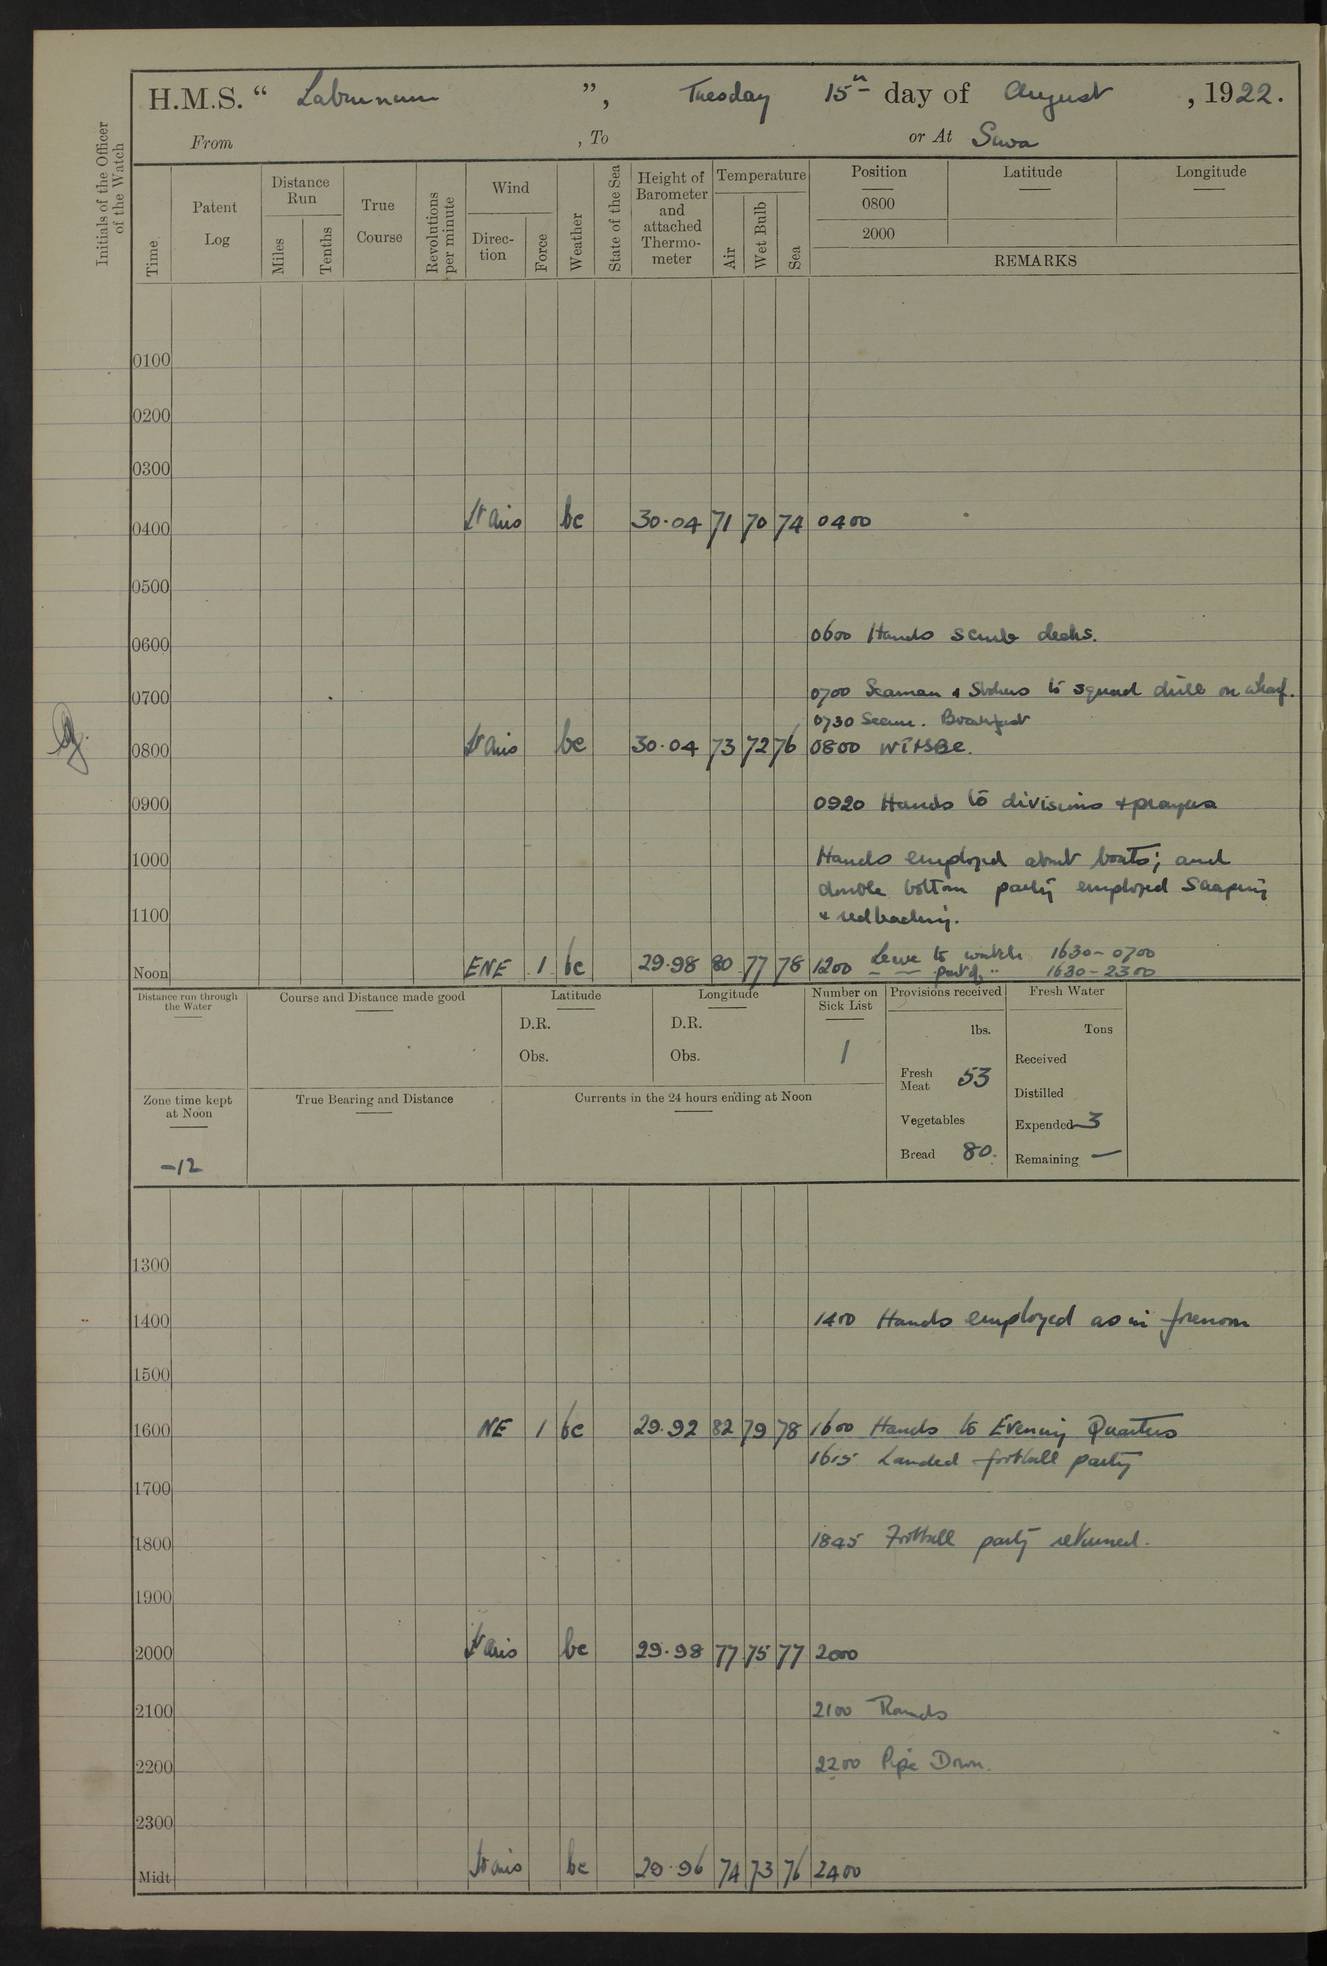 H.M.S. “ Laburnum ”, Tuesday 15th day of August , 1922.
From , To or At Suva
Initials of the Officer of the Watch
Time
Patent Log
Distance Run
Miles
Tenths
True Course
Revolutions per minute
Wind
Direction
Force
Weather
State of the Sea
Height of Barometer and attached Thermometer
Temperature
Air
Wet Bulb
Sea
Position
0800
2000
Latitude
Longitude
REMARKS
0100
0200
0300
0400 Lt airs bc 30.04 71 70 74 0400
0500
0600 0600 Hands scrub decks.
0700 0700 Seaman & Stokers to squad drill on wharf.
0730 Secure. Breakfast
0800 Lt airs bc 30.04 73 72 76 0800 WTHSBC.
0900 0920 Hands to divisions & prayers
1000 Hands employed about boats; and
double bottom party employed Scraping
1100 & redleading.
Noon ENE 1 bc 29.98 80 77 78 1200 Leave to watch 1630-0700
" — part of " 1630-2300
Distance run through the Water
Course and Distance made good
Latitude
D.R.
Obs.
Longitude
D.R.
Obs.
Number on Sick List
1
Provisions received
lbs.
Fresh Meat 53
Vegetables
Bread 80.
Fresh Water
Tons
Received
Distilled
Expended 3
Remaining —
Zone time kept at Noon
-12
True Bearing and Distance
Currents in the 24 hours ending at Noon
1300
1400 1400 Hands employed as in forenoon
1500
1600 NE 1 bc 29.92 82 79 78 1600 Hands to Evening Quarters
1615 Landed football party
1700
1800 1845 Football party returned.
1900
2000 Lt airs bc 29.98 77 75 77 2000
2100 2100 Rounds
2200 2200 Pipe Down.
2300
Midt Lt airs bc 29.96 74 73 76 2400